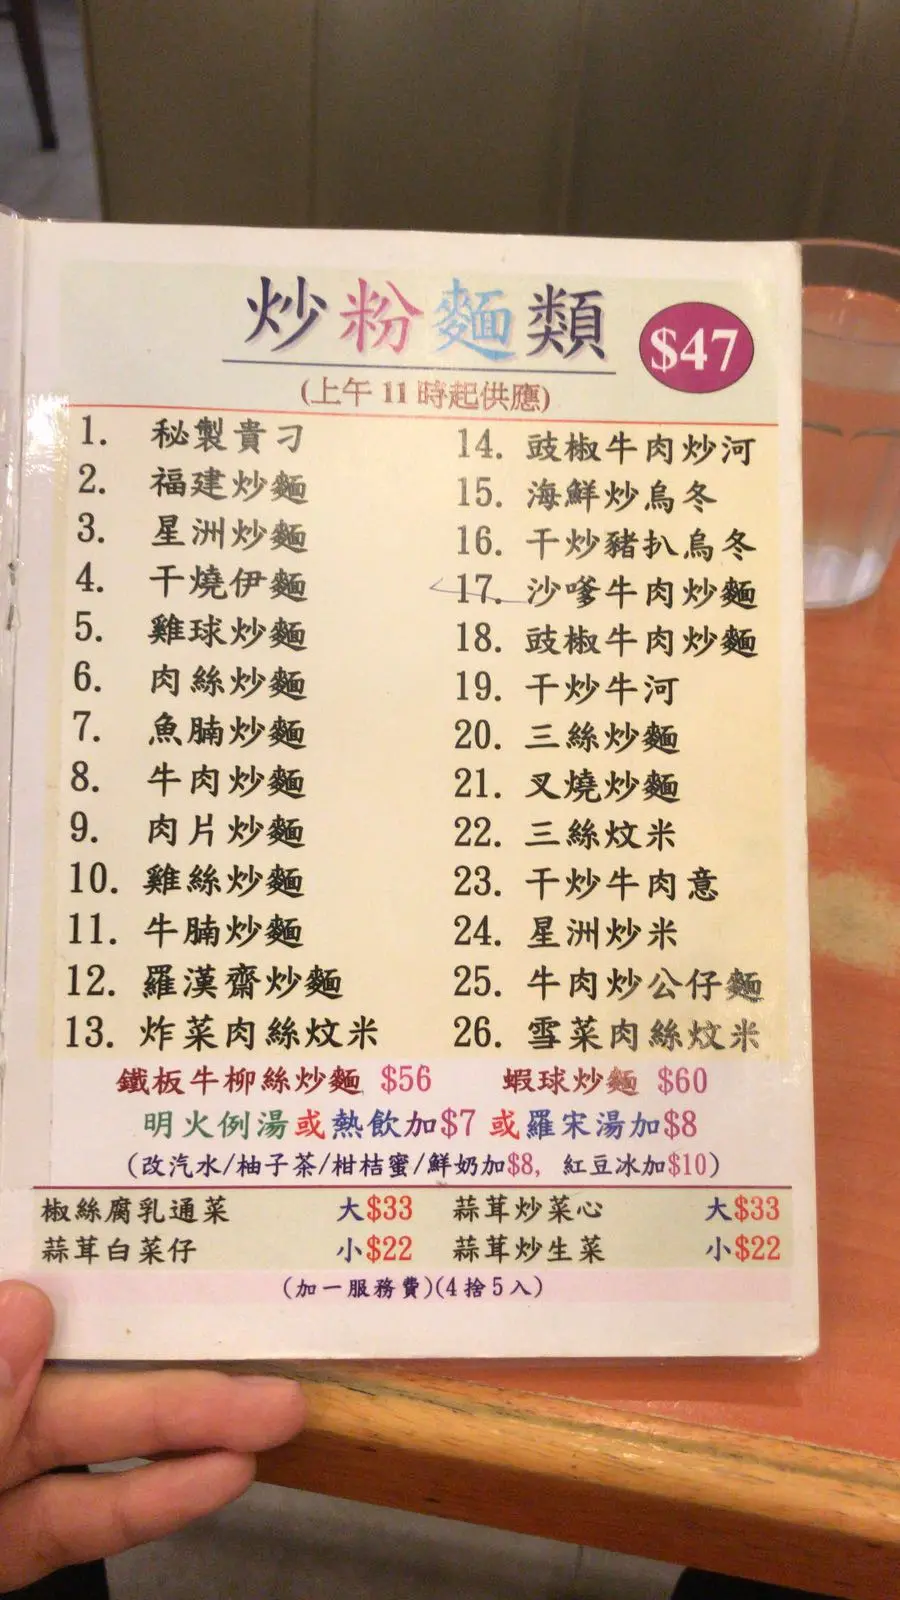 炒粉麵類
$47
(上午11時起供應)
1. 秘製貴刁
2. 福建炒麵
3. 星洲炒麵
4. 干燒伊麵
5. 雞球炒麵
6. 肉絲炒麵
7. 魚腩炒麵
8. 牛肉炒麵
9. 肉片炒麵
10. 雞絲炒麵
11. 牛腩炒麵
12. 羅漢齋炒麵
13. 炸菜肉絲炆米
14. 豉椒牛肉炒河
15. 海鮮炒烏冬
16. 干炒豬扒烏冬
17. 沙嗲牛肉炒麵
18. 豉椒牛肉炒麵
19. 干炒牛河
20. 三絲炒麵
21. 叉燒炒麵
22. 三絲炆米
23. 干炒牛肉意
24. 星洲炒米
25. 牛肉炒公仔麵
26. 雪菜肉絲炆米
鐵板牛柳絲炒麵 $56 蝦球炒麵 $60
明火例湯或熱飲加$7 或羅宋湯加$8
(改汽水/柚子茶/柑桔蜜/鮮奶加$8, 紅豆冰加$10)
椒絲腐乳通菜 大$33 蒜茸炒菜心 大$33
蒜茸白菜仔 小$22 蒜茸炒生菜 小$22
(加一服務費)(4捨5入)